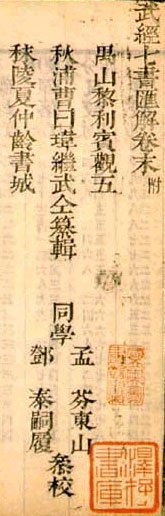 武經七書匯解卷末附
禺山黎利賓觀五
秋浦曹曰瑋繼武仝纂輯
秣陵夏仲齡書城
同學
孟芬東山
鄧泰嗣履
叅校